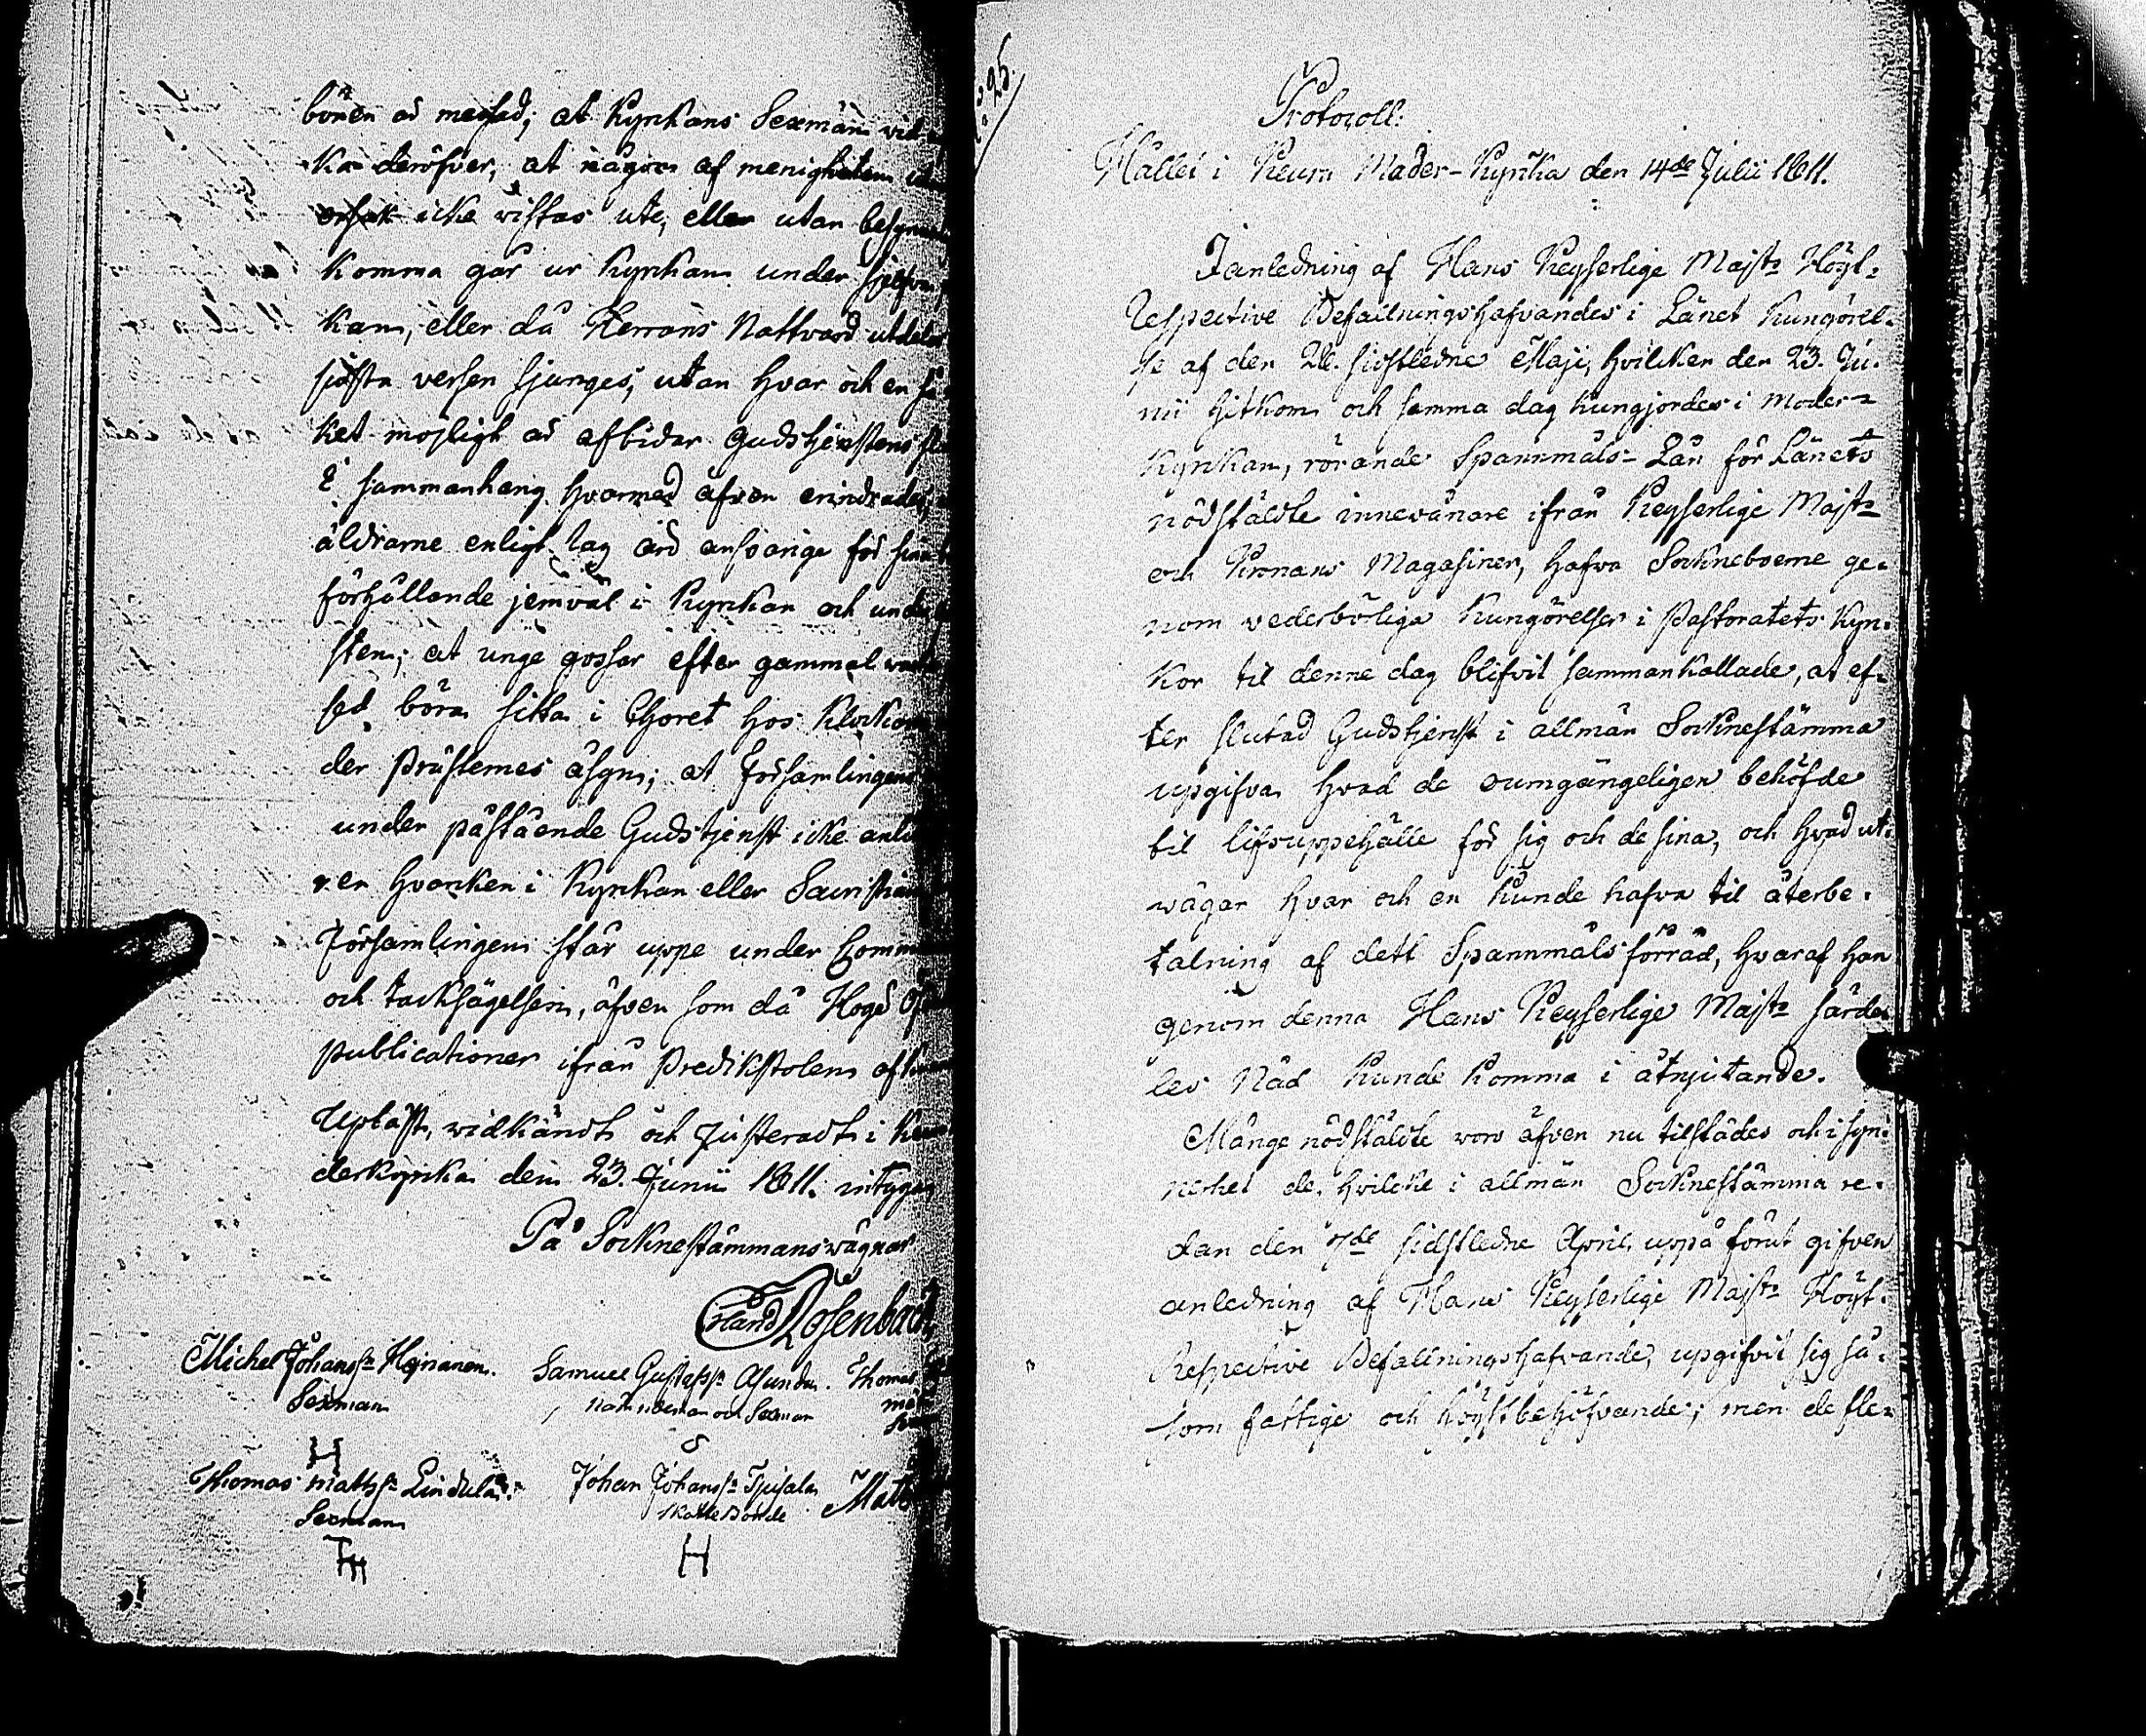 bönen är medfad; at Kyrkans Sexmän
ka deröfver, at någon af menigheten
orsak icke vistas ute, eller utan
komma går ur Kyrkan under sjelfva
kan, eller då Herrans Nattvard utdelas
sidsta versen sjunges; utan hvar och en
ket mojligt är afbidar Gudstjenstens
I sammanhang hvarmed äfven erindrades,
äldrarne enligt Lag äro ansvarige för sina
förhållande jemväl i Kyrkan och under
sten; at unge gossar efter gammal
sed böra sitta i Choret hos Klockaren
der Prästernes åsyn; at Församlingen
under påstående Gudstjenst icke
ver hvarken i Kyrkan eller
Församlingen står uppe under
och tacksägelsen, äfven som då Höga
publicationer ifrån Predikstolen
Upläst, widkändt och Justeradt i
derkyrka den 23. Junii 1811. intygar
På Socknestämmans wägnar
Erland Rosenback
Michel Johanss:n Hejnanen. Samuel Gustafss:n Asunda. Thomas
Sexman Nämndeman och Sexman
H S
Thomas Matts:n Lindula. Johan Johanss:n Tjusala Matt
Sexman Skattebonde
TH H
25.
Protocoll:
Hållet i Keuru Moder-Kyrka den 14de Julii 1811.
I anledning af Hans Keyserlige Majst:s Höyt-
Respective Befallningshafvandes i Länet Kungörel-
se af den 28. sidstledne Maji, hvilcken den 23. Ju-
nii hitkom och samma dag kungjordes i Moder-
Kyrkan, rörande Spannmåls-Lån för Länets
nödstäldte innevånare ifrån Keyserlige Majst:s
och Kronans Magasiner, hafva Sockneboerne ge-
nom vederbörliga Kungörelser i Pastoratets Kyr-
kor til denne dag blifvit sammankallade, at ef-
ter slutad Gudstjenst i allmän Socknestämma
upgifva hvad de oumgängeligen behöfde
til lifsuppehälle för sig och de sina, och hvad ut-
wägar hvar och en kunde hafva til återbe-
talning af dett Spannmåls förråd, hvaraf han
genom denna Hans Keyserlige Majst:s särde-
les Nåd kunde komma i åtnjutande.
Månge nödstäldte woro äfven nu tilstädes och i syn-
nerhet de, hvilcke i allmän Socknestämma re-
dan den 7de sidstledne April, uppå förut gifven
anledning af Hans Keyserlige Majst:s Höyt-
Respective Befallningshafvande, upgifvit sig så-
som fattige och höystbehöfvande; men de fle-